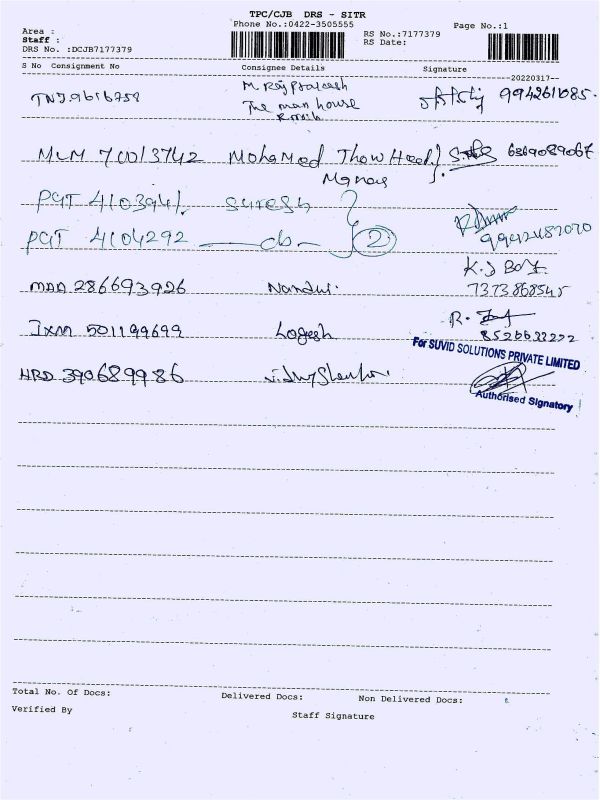 TPC/CJB DRS - SITR
Phone No.:0422-3505555
Area :
Staff :
DRS No. :DCJB7177379
RS No.:7177379
RS Date:
Page No.:1
S No Consignment No Consignee Details Signature
--20220317--
M Rajprakash
The man house
994261085.
MLM 70013742 Mohamed Thowheed
6369089067
PGT 4103941 Suresh
PGT 4104292 —do— 2
9942487070
K.J Boy.
MAA 286693926 Nandhi. 7373868545
R.
IXM 501199699 Logesh 8526633222
For SUVID SOLUTIONS PRIVATE LIMITED
HRD 390689986
Authorised Signatory
Total No. Of Docs: Delivered Docs: Non Delivered Docs:
Verified By
Staff Signature